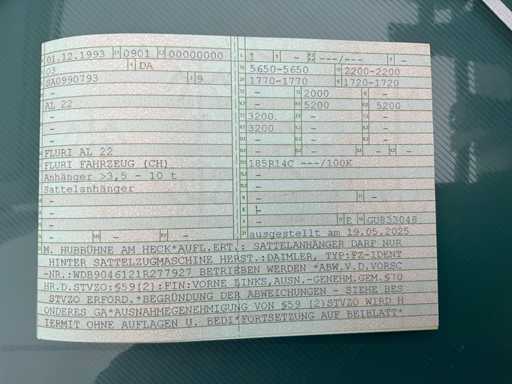 01.12.1993 0901 00000000
03 DA
SA0990793 9
-
AL 22
-
-
-
FLURI AL 22
FLURI FAHRZEUG (CH)
Anhänger >3,5 - 10 t
Sattelanhänger
-
-
-
- - -
1 - ---/--- -
5650-5650 2200-2200
1770-1770 1720-1720
- 2000 -
- 5200 5200
3200 - -
3200 - -
- - -
- - - -
185R14C ---/100K
-
-
- -
-
- E GUB33048
ausgestellt am 19.05.2025
M. HUBBÜHNE AM HECK*AUFL.ERT.: SATTELANHÄNGER DARF NUR
HINTER SATTELZUGMASCHINE HERST.:DAIMLER, TYP:FZ-IDENT
-NR.:WDB9046121R277927 BETRIEBEN WERDEN *ABW.V.D.VORSC
HR.D.STVZO:§59[2]:FIN:VORNE LINKS,AUSN.-GENEHM.GEM.§70
STVZO ERFORD.*BEGRÜNDUNG DER ABWEICHUNGEN - SIEHE BES
ONDERES GA*AUSNAHMEGENEHMIGUNG VON §59 [2]STVZO WIRD H
IERMIT OHNE AUFLAGEN U. BEDI*FORTSETZUNG AUF BEIBLATT*